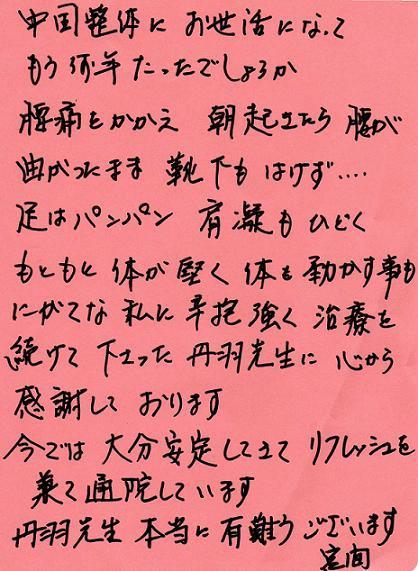 中国整体に お世話になって
もう何年たったでしょうか
腰痛をかかえ 朝起きたら 腰が
曲がったまま 靴下も はけず‥‥
足はパンパン 肩凝も ひどく
もともと 体が 堅く 体を 動かす事も
にがてな 私に 辛抱 強く 治療を
続けて 下さった 丹羽先生に 心から
感謝して おります
今では 大分安定してきて リフレッシュを
兼て 通院しています
丹羽先生 本当に 有難う ございます
宮間